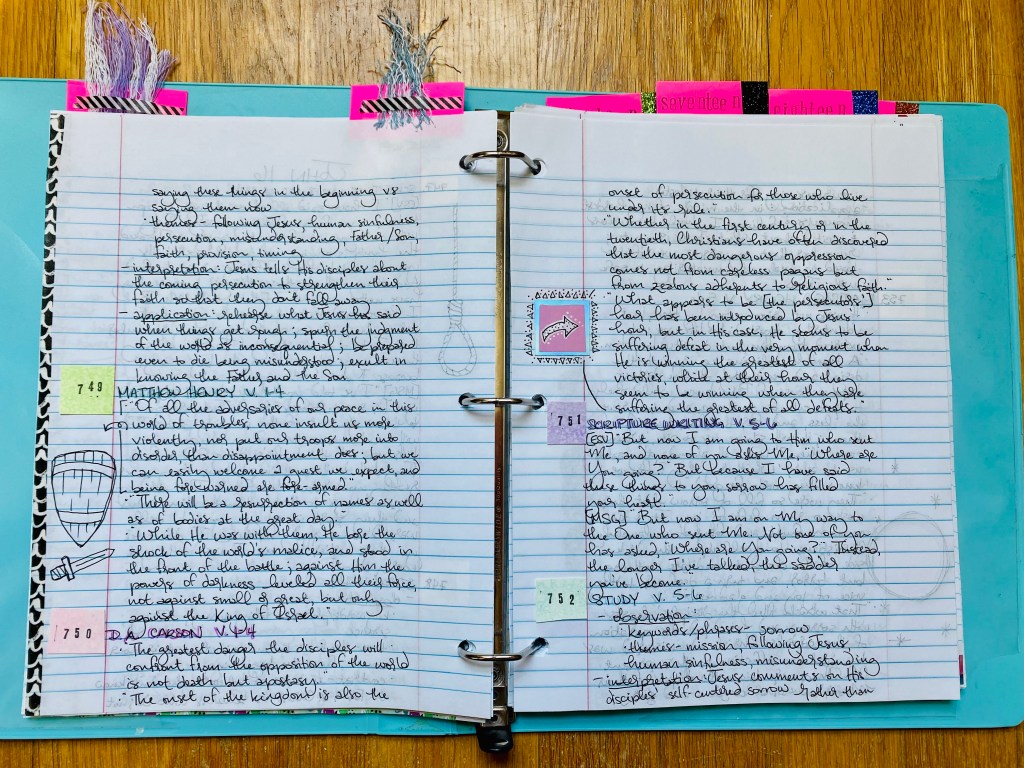 seventeen
eighteen
saying these things in the beginning vs
saying them now
· themes - following Jesus, human sinfulness,
persecution, misunderstanding, Father/Son,
faith, provision, timing
- interpretation: Jesus tells His disciples about
the coming persecution to strengthen their
faith so that they don't fall away
- application: rehearse what Jesus has said
when things get rough; spurn the judgment
of the world as inconsequential; be prepared
even to die being misunderstood; exult in
knowing the Father and the Son
749
MATTHEW HENRY V. 1-4
· "Of all the adversaries of our peace in this
world of troubles, none insult us more
violently, nor put our troops more into
disorder, than disappointment does; but we
can easily welcome a guest we expect, and
being fore-warned are fore-armed."
· "There will be a resurrection of names as well
as of bodies at the great day."
· "While He was with them, He bore the
shock of the world's malice, and stood in
the front of the battle; against Him the
powers of darkness leveled all their force,
not against small or great, but only
against the King of Israel."
750
D.A. CARSON V. 1-4
· "The greatest danger the disciples will
confront from the opposition of the world
is not death but apostasy."
· "The onset of the kingdom is also the
onset of persecution for those who live
under its rule."
· "Whether in the first century or in the
twentieth, Christians have often discovered
that the most dangerous oppression
comes not from careless pagans but
from zealous adherents to religious faith."
· "What appears to be [the persecutors']
hour has been introduced by Jesus'
hour, but in His case He seems to be
suffering defeat in the very moment when
He is winning the greatest of all
victories, while at their hour they
seem to be winning when they are
suffering the greatest of all defeats."
751
SCRIPTURE WRITING V. 5-6
[ESV] "But now I am going to Him who sent
Me, and none of you asks Me, "Where are
You going?" But because I have said
these things to you, sorrow has filled
your heart."
[MSG] "But now I am on My way to
the One who sent Me. Not one of you
has asked, "Where are You going?" Instead,
the longer I've talked, the sadder
you've become."
752
STUDY V. 5-6
- observation:
· keywords/phrases - sorrow
· themes - mission, following Jesus,
human sinfulness, misunderstanding
- interpretation: Jesus comments on His
disciples' self-centered sorrow rather than